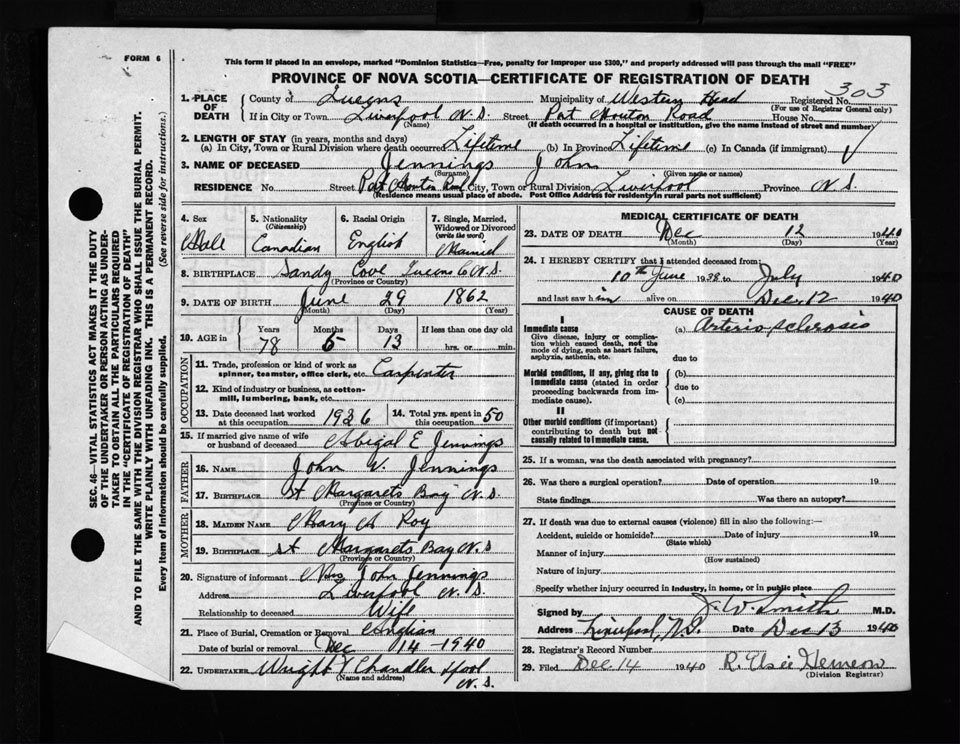 FORM 6
This form if placed in an envelope, marked "Dominion Statistics—Free, penalty for improper use $300," and properly addressed will pass through the mail "FREE"
PROVINCE OF NOVA SCOTIA—CERTIFICATE OF REGISTRATION OF DEATH
303
1. PLACE OF DEATH
County of Queens Municipality of Western Head Registered No.
(For use of Registrar General only)
If in City or Town Liverpool N.S. Street Port Mouton Road House No.
(Name) (If death occurred in a hospital or institution, give the name instead of street and number)
2. LENGTH OF STAY (in years, months and days)
(a) In City, Town or Rural Division where death occurred Lifetime (b) In Province Lifetime (c) In Canada (if immigrant)
3. NAME OF DECEASED Jennings John
(Surname) (Given name or names)
RESIDENCE No. Street Port Mouton Road City, Town or Rural Division Liverpool Province N.S.
(Residence means usual place of abode. Post Office Address for residents in rural parts not sufficient)
4. Sex 5. Nationality 6. Racial Origin 7. Single, Married, Widowed or Divorced
(Citizenship) (write the word)
Male Canadian English Married
8. BIRTHPLACE Sandy Cove Queens Co N.S.
(Province or Country)
9. DATE OF BIRTH June 29 1862
(Month) (Day) (Year)
10. AGE in Years Months Days If less than one day old
78 5 13 hrs. or min.
OCCUPATION
11. Trade, profession or kind of work as spinner, teamster, office clerk, etc. Carpenter
12. Kind of industry or business, as cotton-mill, lumbering, bank, etc.
13. Date deceased last worked at this occupation 1926 14. Total yrs. spent in 50
15. If married give name of wife or husband of deceased Abigal E Jennings
FATHER
16. NAME John W. Jennings
17. BIRTHPLACE St Margarets Bay N.S.
(Province or Country)
MOTHER
18. MAIDEN NAME Mary A Roy
19. BIRTHPLACE St Margarets Bay N.S
(Province or Country)
20. Signature of informant Mrs John Jennings
Address Liverpool N.S.
Relationship to deceased Wife
21. Place of Burial, Cremation or Removal
Date of burial or removal Dec 14 1940
22. UNDERTAKER Wright & Chandler Lpool
(Name and address) N.S.
MEDICAL CERTIFICATE OF DEATH
23. DATE OF DEATH Dec 12 1940
(Month) (Day) (Year)
24. I HEREBY CERTIFY that I attended deceased from:
10th June 1938 to July 1940
and last saw him alive on Dec. 12 1940
CAUSE OF DEATH
I
Immediate cause (a) Arterio sclerosis
Give disease, injury or complication which caused death, not the mode of dying, such as heart failure, asphyxia, asthenia, etc.
due to
Morbid conditions, if any, giving rise to immediate cause (stated in order proceeding backwards from immediate cause).
(b)
due to
(c)
II
Other morbid conditions (if important) contributing to death but not causally related to immediate cause.
25. If a woman, was the death associated with pregnancy?
26. Was there a surgical operation? Date of operation 19
State findings Was there an autopsy?
27. If death was due to external causes (violence) fill in also the following:—
Accident, suicide or homicide? Date of injury 19
(State which)
Manner of injury
(How sustained)
Nature of injury
Specify whether injury occurred in industry, in home, or in public place
Signed by J. W. Smith M.D.
Address Liverpool, N.S. Date Dec 13 1940
28. Registrar's Record Number
29. Filed Dec 14 1940 R. Elsie Hemeon
(Division Registrar)
SEC. 46—VITAL STATISTICS ACT MAKES IT THE DUTY
OF THE UNDERTAKER OR PERSON ACTING AS UNDERTAKER TO OBTAIN ALL THE PARTICULARS REQUIRED
IN THE "CERTIFICATE OF REGISTRATION OF DEATH"
AND TO FILE THE SAME WITH THE DIVISION REGISTRAR WHO SHALL ISSUE THE BURIAL PERMIT.
WRITE PLAINLY WITH UNFADING INK. THIS IS A PERMANENT RECORD.
Every item of information should be carefully supplied. (See reverse side for instructions.)